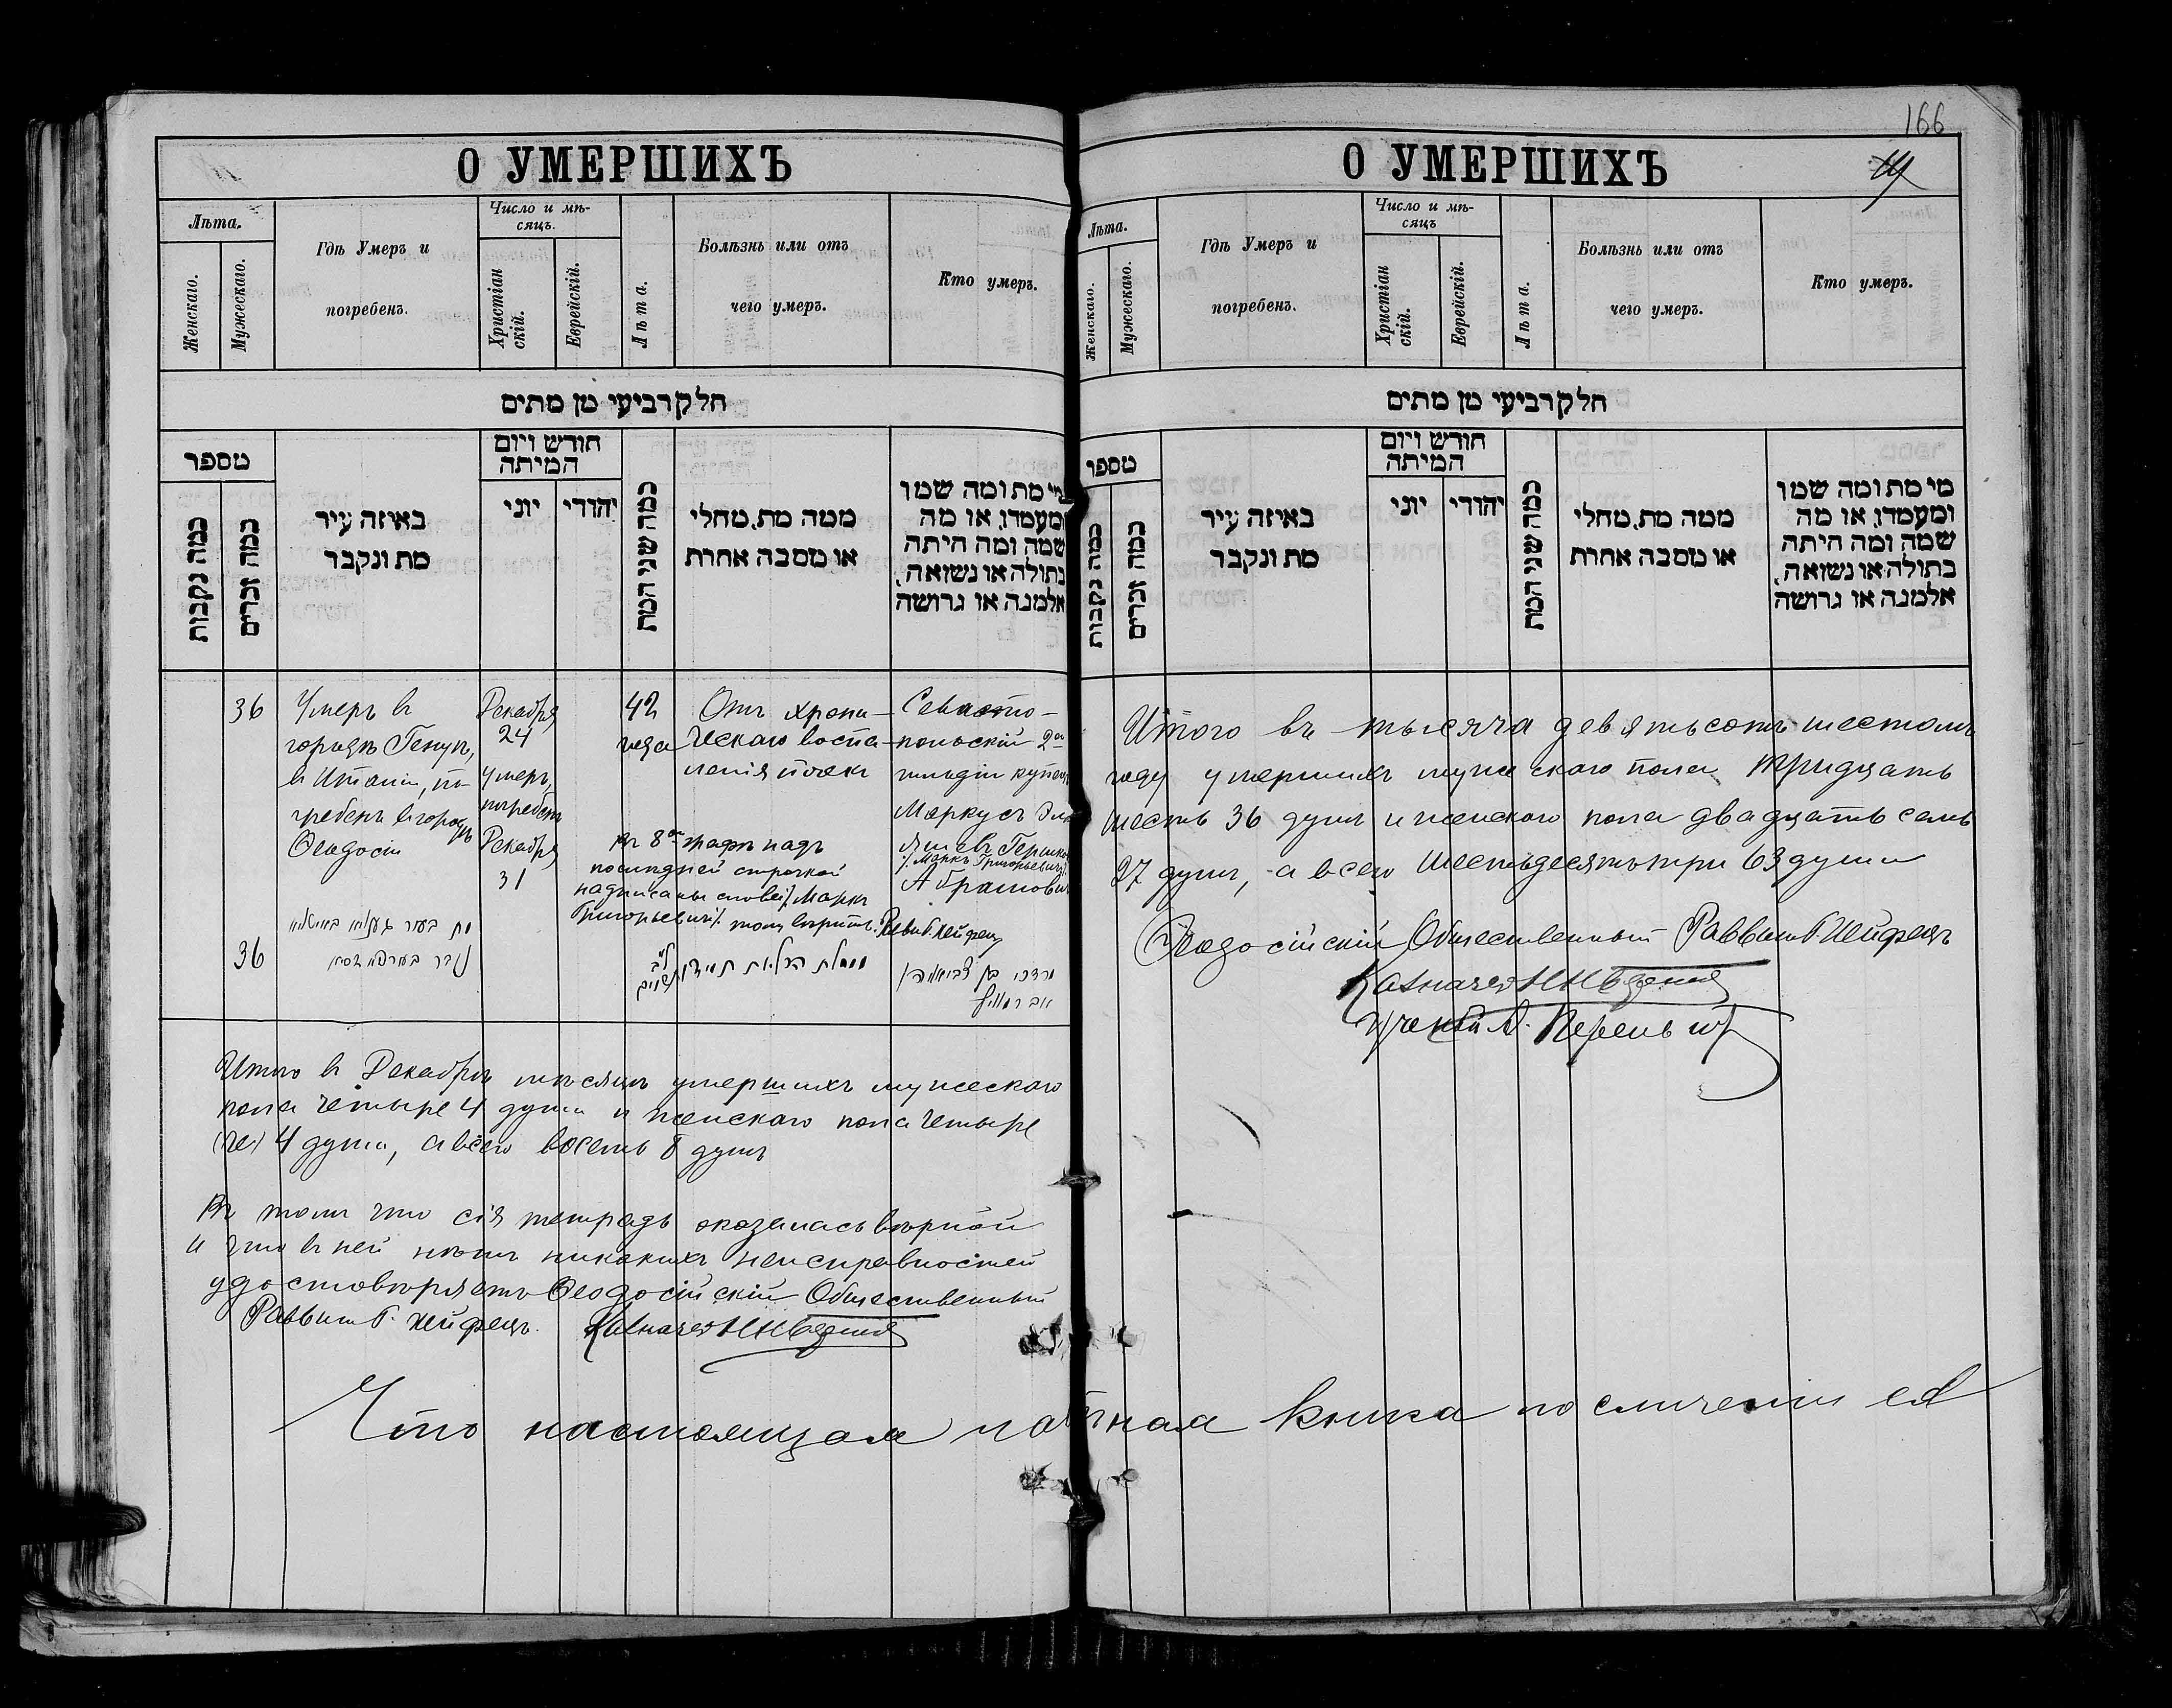 166
О УМЕРШИХЪ
Лѣта.
Женскаго.
Мужескаго.
Гдѣ Умеръ и
погребенъ.
Число и мѣ-
сяцъ.
Христіан
скій.
Еврейскій.
Лѣта.
Болѣзнь или отъ
чего умеръ.
Кто умеръ.
חלק רביעי מן מתים
מספר
כמה נקבות
כמה זכרים
באיזה עיר
מת ונקבר
חודש ויום
המיתה
יוני
יהודי
כמה שני המת
ממה מת, מחלי
או מסבה אחרת
מי מת ומה שמו
ומעמדו, או מה
שמה ומה היתה
בתולה או נשואה,
אלמנה או גרושה
36
Умеръ в
городѣ Генуѣ,
в Италіи, по-
гребенъ в городѣ
Ѳеодосіи
Декабря
24
умеръ,
погребенъ
Декабря
31
42
года
Отъ хрони-
ческаго воспа-
ленія почекъ
Севасто-
польскій 2ой
гильдіи купецъ
Маркусъ
Гершко
/. Маркъ Григорьевичъ /.
Абрамович
Въ 8ой графѣ надъ
послѣдней строчкой
надписаны слова /. Маркъ
Григорьевичъ /. тому вѣрить. Раввинъ Б. Хейфецъ
36
Итого в Декабрѣ мѣсяцѣ умершихъ мужескаго
пола четыре 4 души и женскаго пола четыре
(че) 4 души, а всего восемь 8 душъ
Въ томъ что сія тетрадь оказалась вѣрной
и что в ней нѣтъ никакихъ неисправностей
удостовѣряетъ Ѳеодосійскій Общественный
Раввинъ Б. Хейфецъ. Казначей
О УМЕРШИХЪ
Лѣта.
Женскаго.
Мужескаго.
Гдѣ Умеръ и
погребенъ.
Число и мѣ-
сяцъ
Христіан
скій.
Еврейскій.
Лѣта.
Болѣзнь или отъ
чего умеръ.
Кто умеръ.
חלק רביעי מן מתים
מספר
כמה נקבות
כמה זכרים
באיזה עיר
מת ונקבר
חודש ויום
המיתה
יוני
יהודי
כמה שני המת
ממה מת, מחלי
או מסבה אחרת
מי מת ומה שמו
ומעמדו, או מה
שמה ומה היתה
בתולה או נשואה,
אלמנה או גרושה
Итого въ тысяча девятьсотъ шестомъ
году умершихъ мужескаго пола тридцать
шесть 36 душъ и женскаго пола двадцать семь
27 душъ, а всего шестьдесятъ три 63 души
Ѳеодосійскій Общественный Раввинъ Б. Хейфецъ
Казначей
Ученый
Что настоящая книга по сличеніи ея